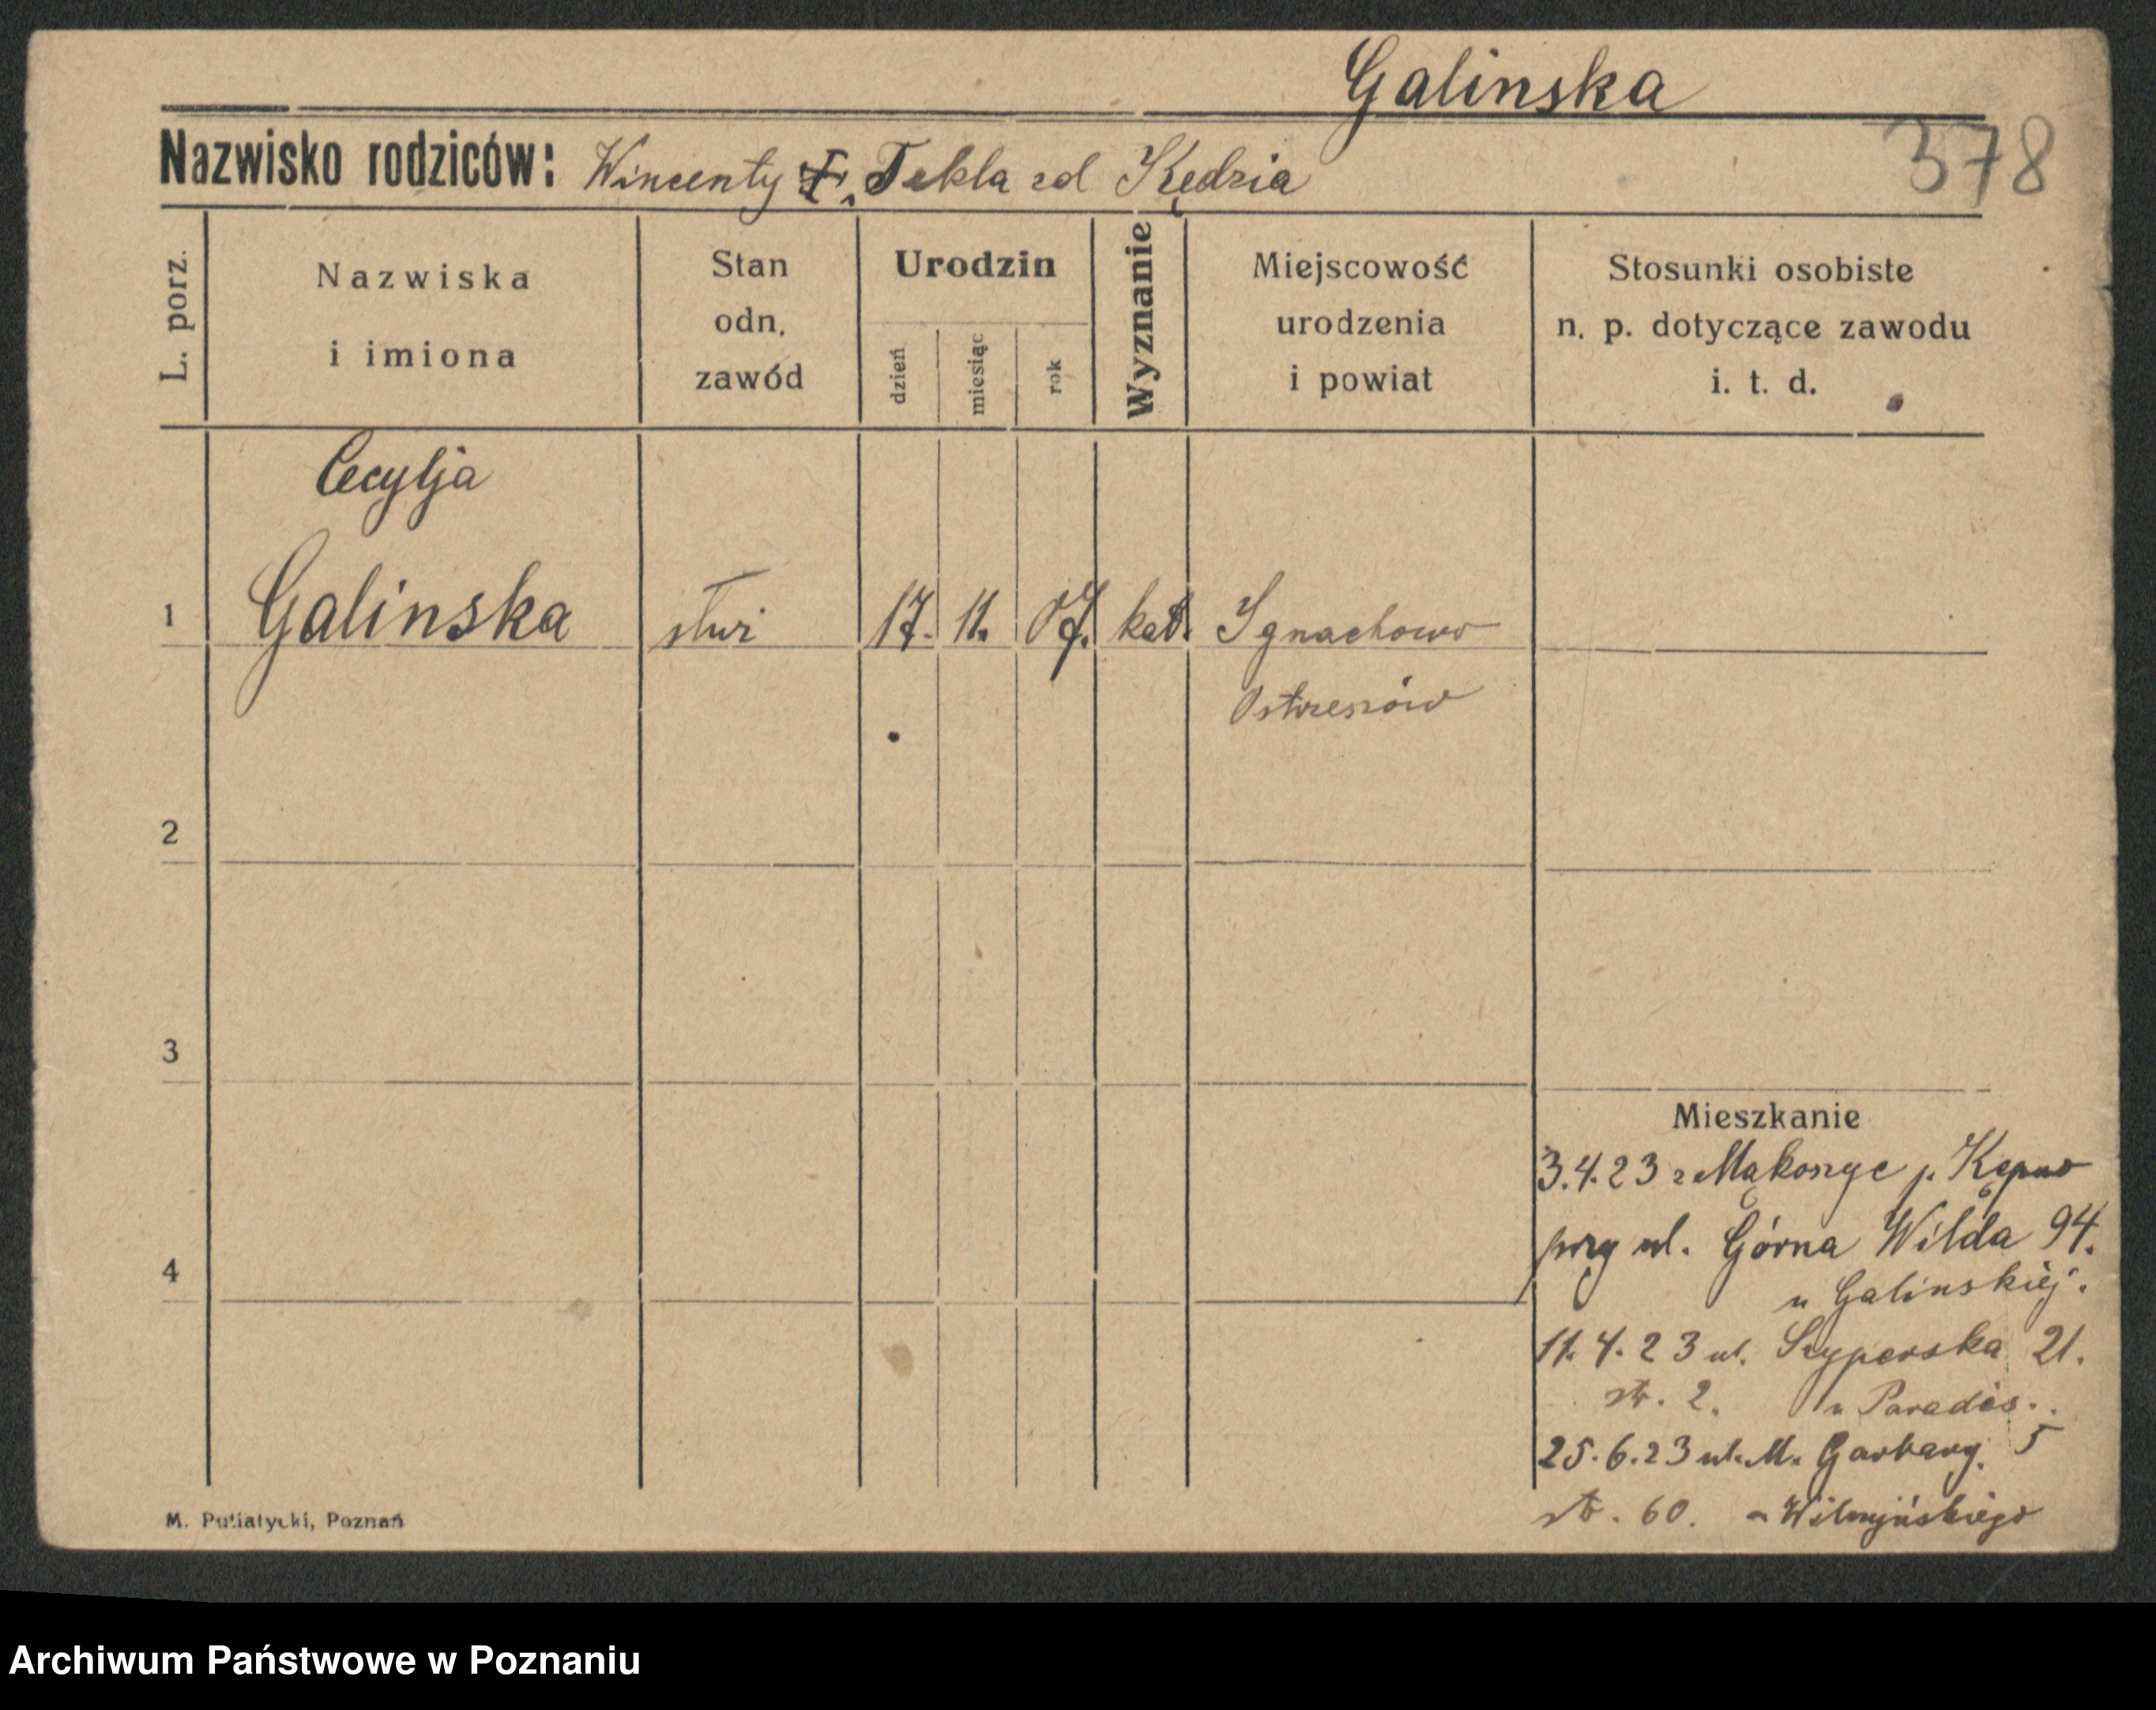 Galinska
Nazwisko rodziców: Wincenty Tekla zd Kędzia
378
L. porz.
Nazwiska
i imiona
Stan
odn.
zawód
Urodzin
dzień
miesiąc
rok
Wyznanie
Miejscowość
urodzenia
i powiat
Stosunki osobiste
n. p. dotyczące zawodu
i. t. d.
Cecylja
1 Galinska służ 17. 11. 07. kat. Ignachowo
Ostrzeszów
2
3
Mieszkanie
3.4.23 z Mąkoszyc p. Kępno
przy ul. Górna Wilda 94.
4
u Galinskiej.
11.4.23 ul. Szyperska 21.
st. 2. u Paradis..
25.6.23 ul. M. Garbary. 5
st. 60. u
M. Putiatycki, Poznań
Archiwum Państwowe w Poznaniu